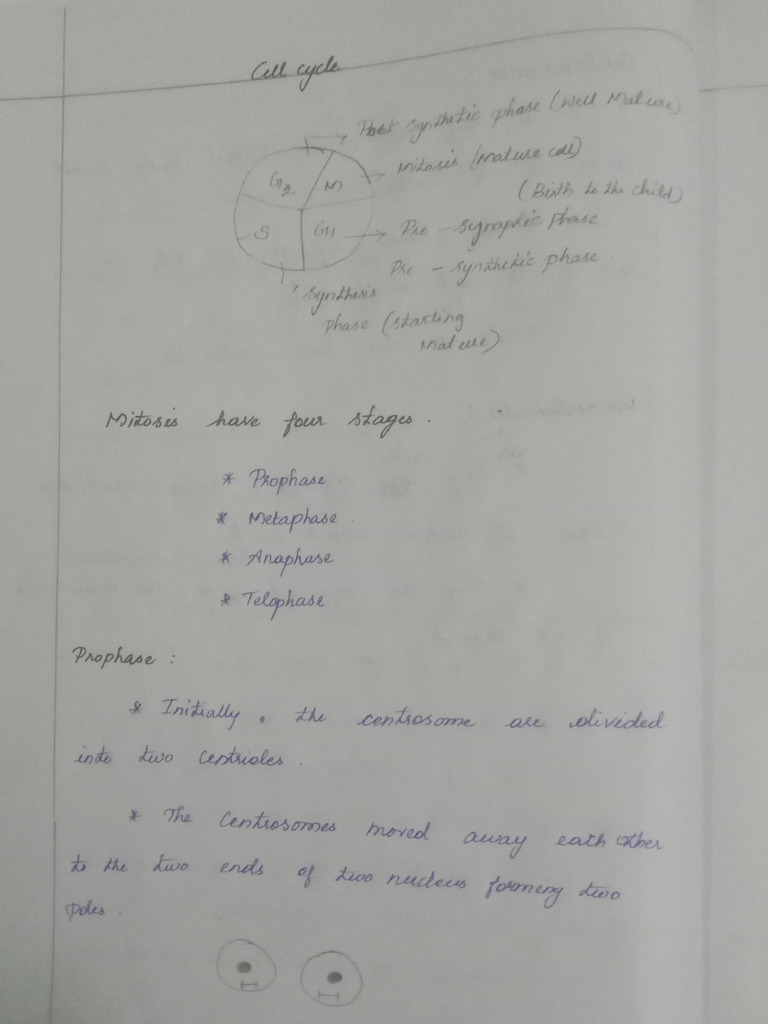 Cell cycle
Post synthetic phase (Well Mature)
G2 M Mitosis (Mature cell)
(Birth to the child)
S G1 Pre - Synaptic Phase
Pre - synthetic phase
Synthesis
Phase (starting
Mature)
Mitosis have four stages.
* Prophase.
* Metaphase.
* Anaphase
* Telophase.
Prophase :
* Initially, the centrosome are divided
into two Centrioles.
* The Centrosomes moved away eath other
to the two ends of two nucleus forming two
poles.